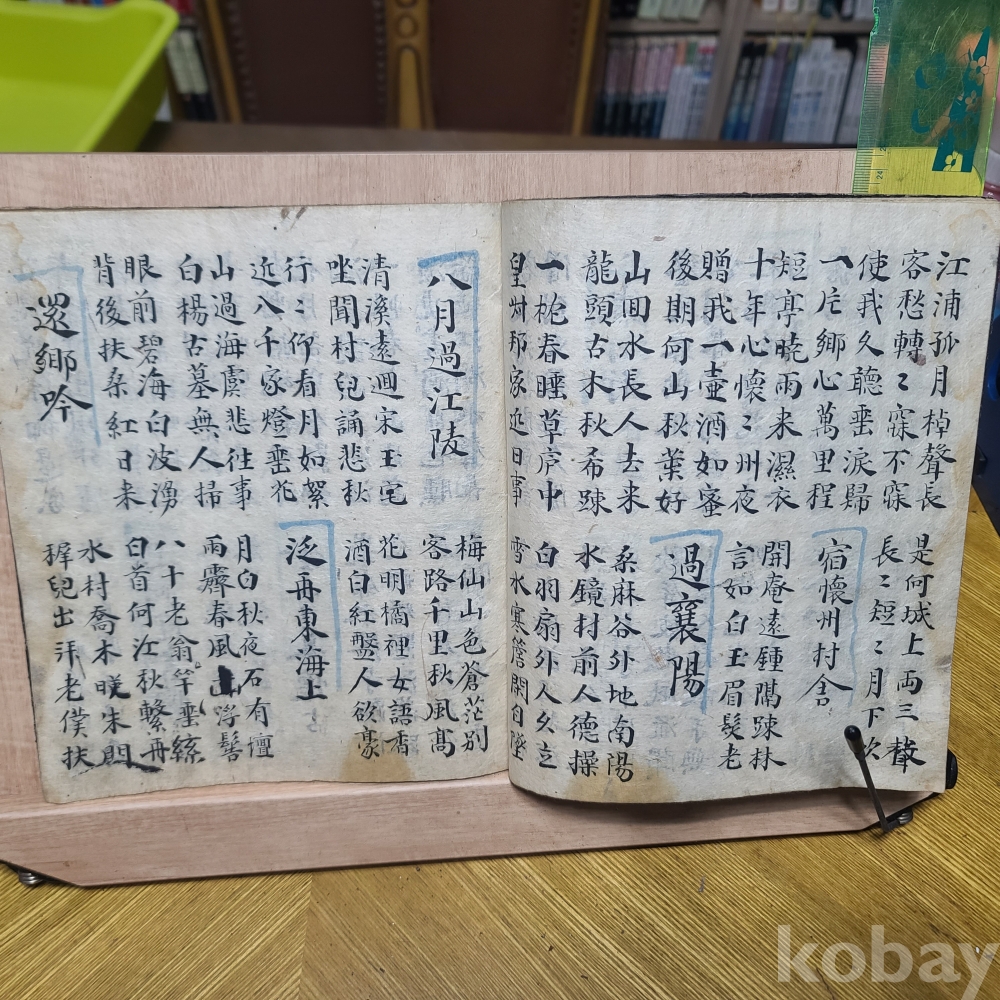 江浦孤月棹聲長
是何城上両三聲
客愁轉〻寐不寐
長〻短〻月下吹
使我久聽垂淚歸
一片鄉心萬里程
宿懷州村舍
短亭曉雨来濕衣
開庵遠鍾隔踈林
十年心懷〻州夜
言如白玉眉髮老
贈我一壺酒如蜜
後期何山秋葉好
過襄陽
山回水長人去来
桑麻谷外地南陽
龍頭古木秋希踈
水鏡村前人德操
一枕春睡草庐中
白羽扇外人幺立
皇州邦家近日事
雪水寒簷閑自坐
八月過江陵
梅仙山色蒼茫別
客路千里秋風髙
清溪遠迴宋玉宅
花明橋裡女語香
坐聞村兒誦悲秋
酒白紅盤人欲豪
行〻仰看月如絮
近八千家燈垂花
泛舟東海上
山過海虞悲往事
月白秋夜石有壇
白楊古墓無人掃
雨霽春風山浮髻
眼前碧海白波湧
八十老翁竿垂絲
背後扶桑紅日来
白首何江秋繫舟
還鄉吟
水村喬木映朱門
穉兒出拜老僕扶
kobay